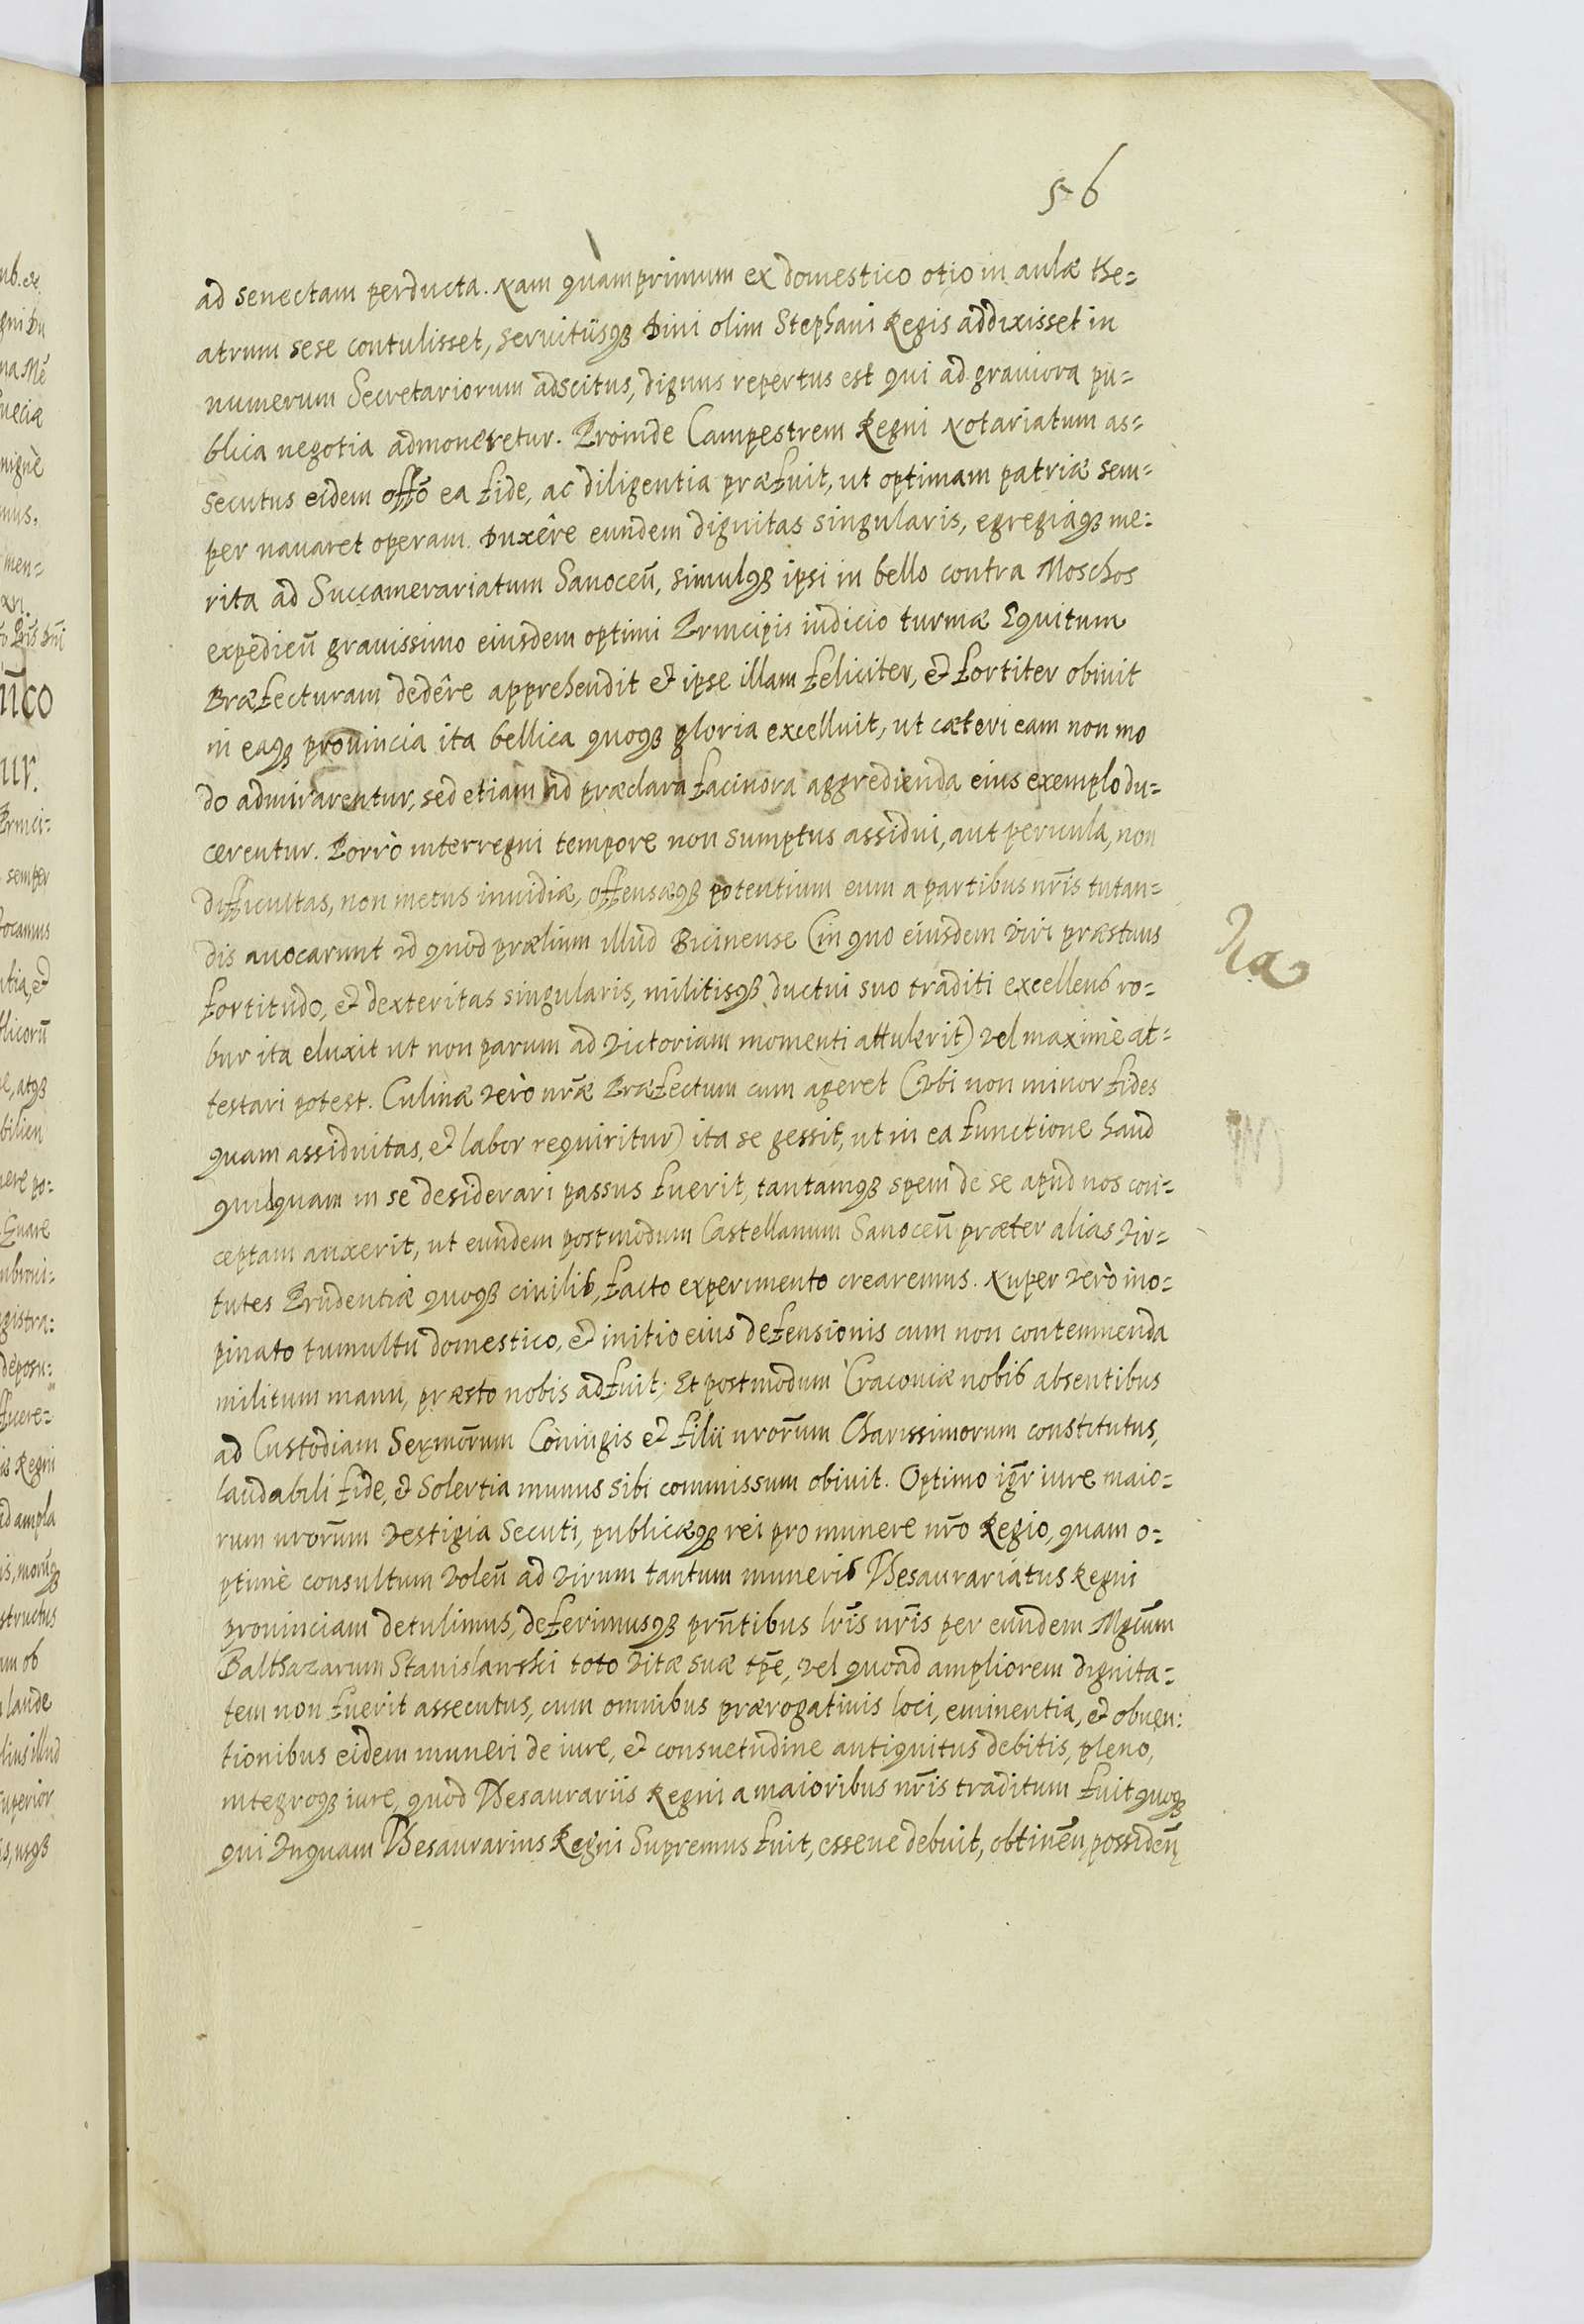 56
ad senectam perducta. Nam quàm primum ex domestico otio in aulæ the=
atrum sese contulisset, seruitiisqꝫ Diui olim Stephani Regis addixisset in
numerum Secretariorum adscitus, dignus repertus est qui ad grauiora pu=
blica negotia admoueretur. Proinde Campestrem Regni Notariatum as=
secutus eidem offō ea fide, ac diligentia præfuit, ut optimam patriæ sem=
per nauaret operam. Duxêre eundem dignitas singularis, egregiáqꝫ me=
rita ad Succamerariatum Sanoceñ, simulqꝫ ipsi in bello contra Moschos
expedieñ grauissimo eiusdem optimi Principis iudicio turmæ Equitum
Præfecturam dedêre apprehendit et ipse illam feliciter, et fortiter obiuit
in eaqꝫ prouincia ita bellica quoqꝫ gloria excelluit, ut cæteri eam non mo
do admirarentur, sed etiam ad præclara facinora aggredienda eius exemplo du=
cerentur. Porrò interregni tempore non sumptus assidui, aut pericula, non
difficultas, non metus inuidiæ, offensæqꝫ potentium eum a partibus nr̃is tutan=
dis auocarunt id quod prælium illud Bicinense (in quo eiusdem viri præstans
fortitudo, et dexteritas singularis, militisqꝫ ductui suo traditi excellens ro=
bur ita eluxit ut non parum ad victoriam momenti attulerit) vel maximè at=
testari potest. Culinæ verò nr̃æ Præfectum cum ageret (vbi non minor fides
quam assiduitas, et labor requiritur) ita se gessit, ut in ea functione haud
quidquam in se desiderari passus fuerit, tantamqꝫ spem de se apud nos con=
ceptam auxerit, ut eundem postmodum Castellanum Sanoceñ præter alias vir=
tutes Prudentiæ quoqꝫ ciuilis, facto experimento crearemus. Nuper verò ino=
pinato tumultu domestico, et initio eius defensionis cum non contemnenda
militum manu, præsto nobis adfuit; Et postmodum Cracouiæ nobis absentibus
ad Custodiam Sermōrum Coniugis et filii nrorum Charissimorum constitutus,
laudabili fide, et Solertia munus sibi commissum obiuit. Optimo igr̃ iure maio=
rum nrorũm vestigia Secuti, publicæqꝫ rei pro munere nr̃o Regio, quam o=
ptimè consultum voleñ ad virum tantum muneris Thesaurariatus Regni
prouinciam detulimus, deferimusqꝫ prñtibus lr̃is nr̃is per eundem Mgcũm
Balthazarum Stanislawski toto vitæ suæ tp̃e, vel quoad ampliorem dignita=
tem non fuerit assecutus, cum omnibus prærogatiuis loci, eminentia, et obuen=
tionibus eidem muneri de iure, et consuetudine antiquitus debitis, pleno,
integroqꝫ iure, quod Thesaurariis Regni a maioribus nr̃is traditum fuit quoqꝫ
qui vnquam Thesaurarius Regni Supremus fuit, esseue debuit, obtineñ, possideñ